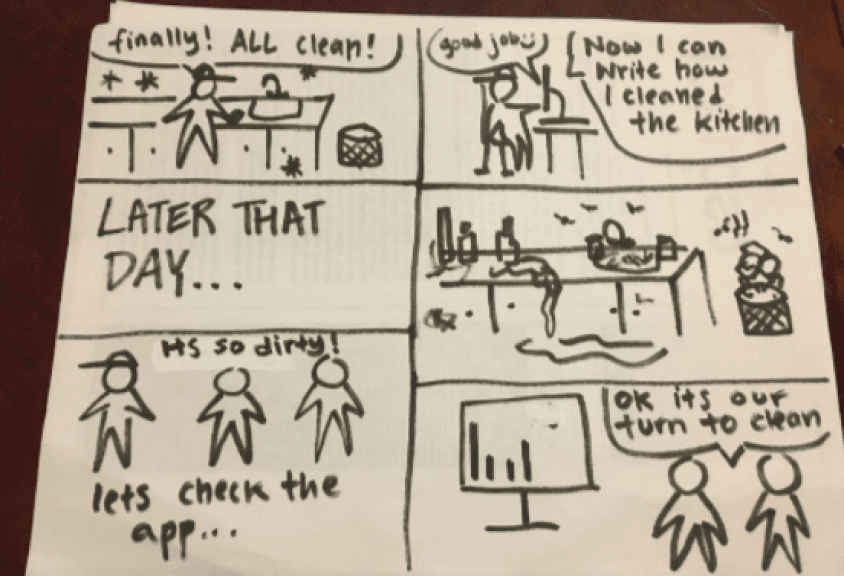 finally! ALL clean!
good job:)
Now I can
Write how
I cleaned
the kitchen
LATER THAT
DAY...
its so dirty!
lets check the
app...
OK its our
turn to clean